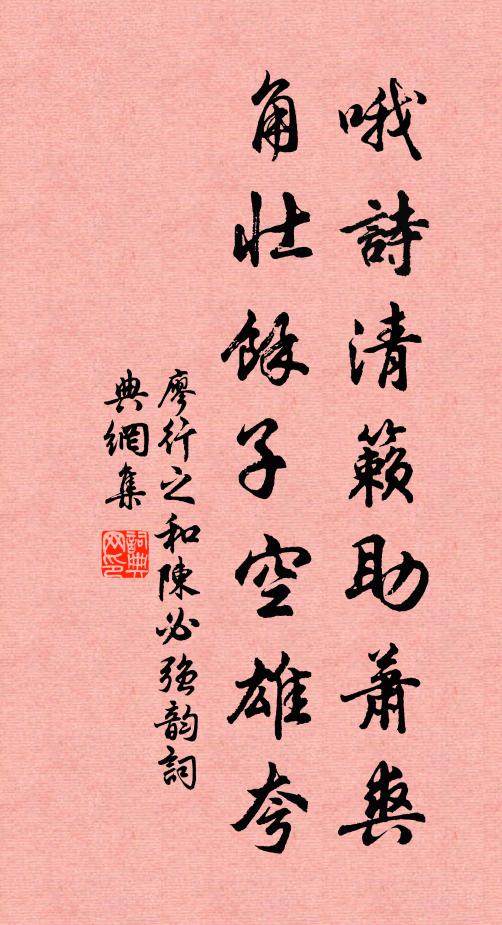 哦詩清籟助蕭爽
角壯餘子空雄夸
廖行之和陳必強韵詞
典網集
詞典
网印